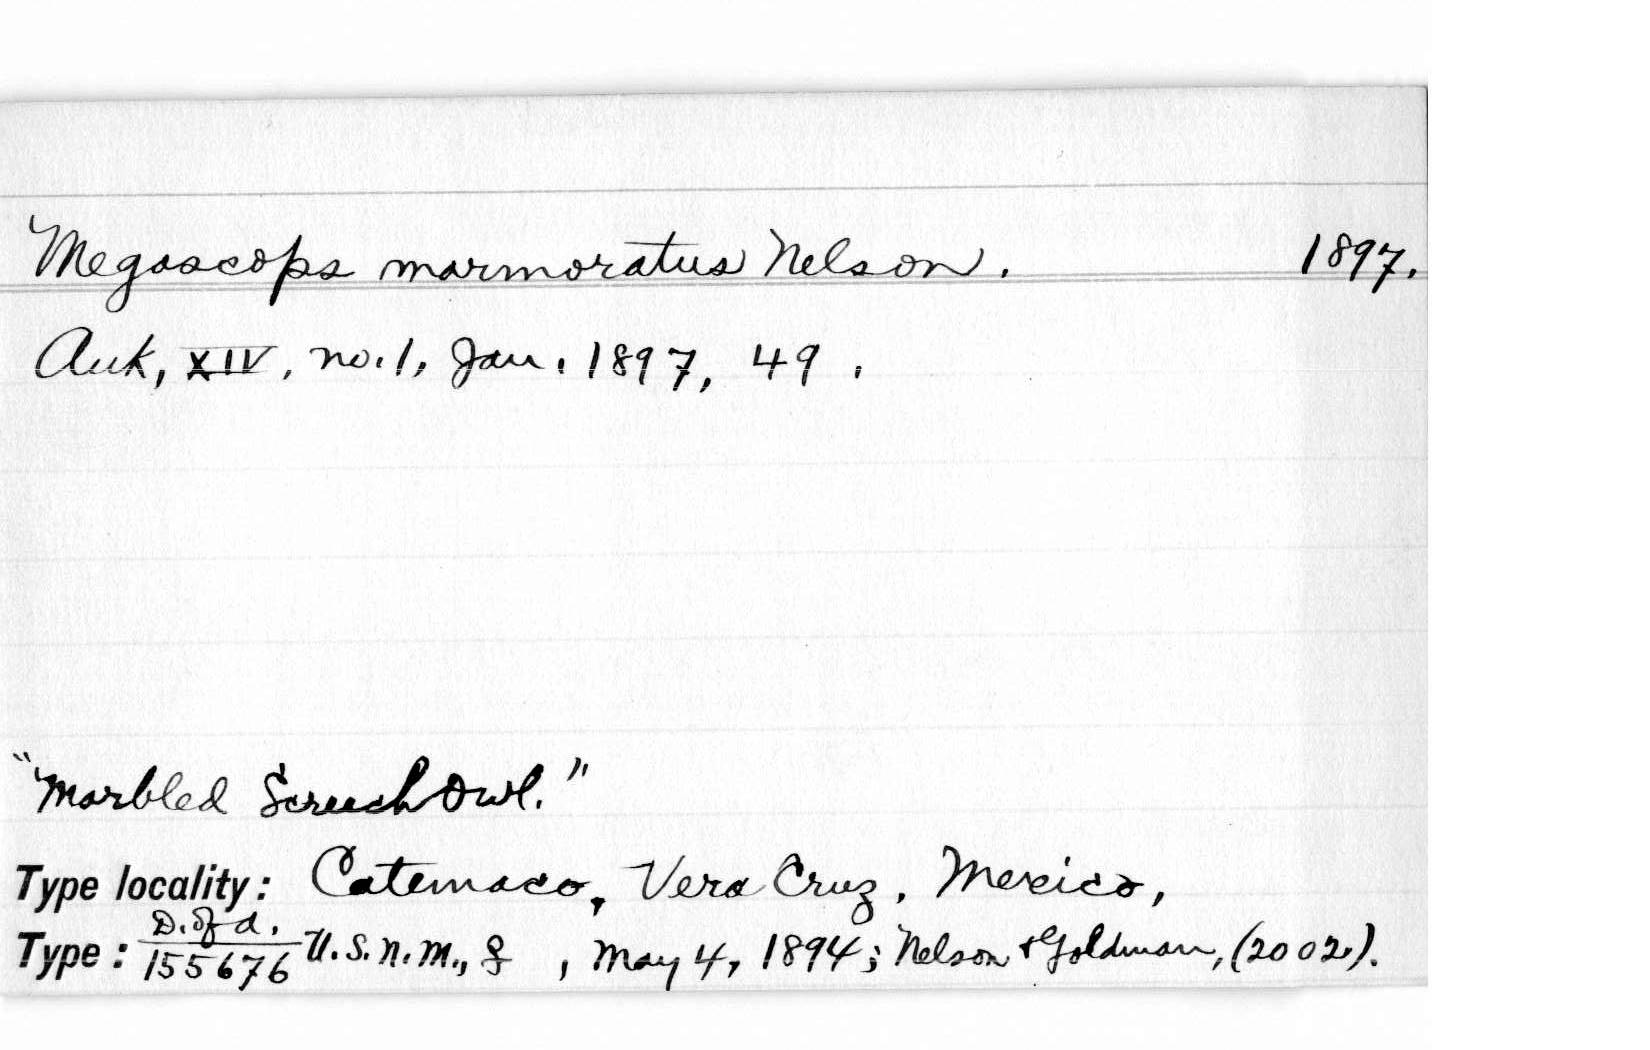 Megascops marmoratus Nelson. 1897.
Auk, XIV, no. 1, Jan. 1897, 49.
"Marbled Screech Owl."
Type locality: Catemaco, Vera Cruz, Mexico,
D. of A.
Type: 155676 U.S.N.M., ♀, May 4, 1894; Nelson & Goldman, (2002).